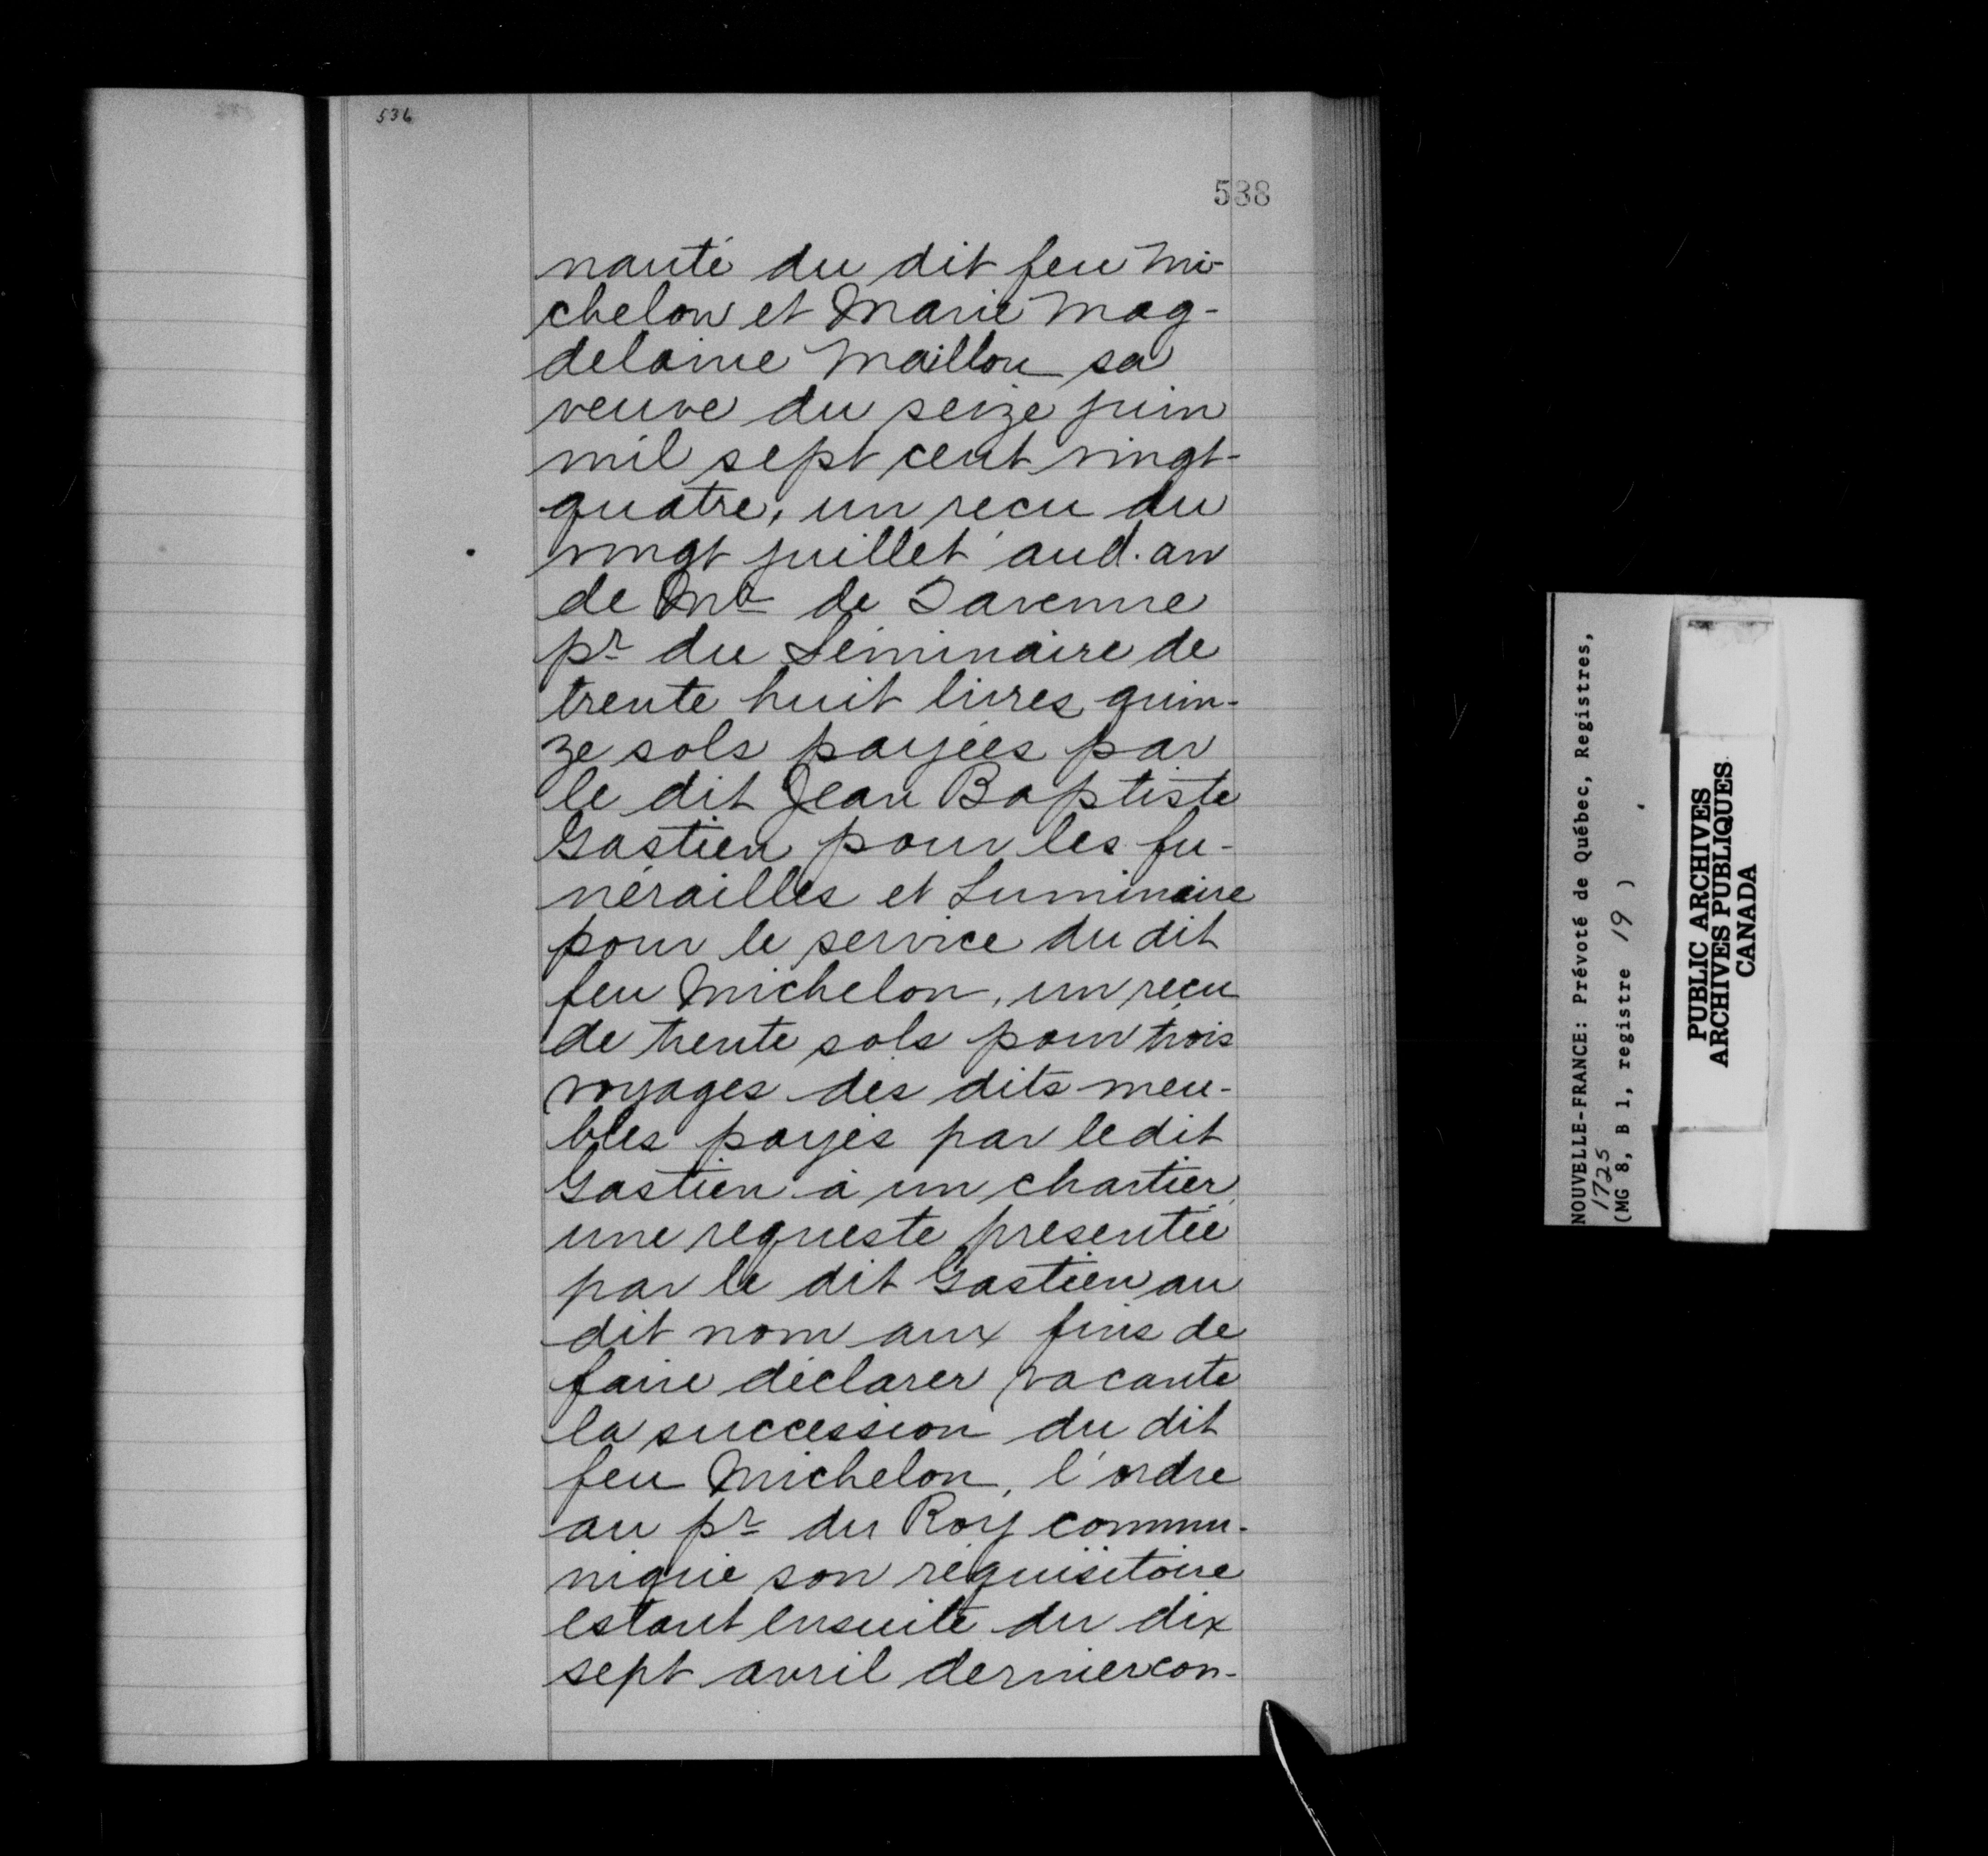 536
538
nauté du dit feu Mi-
chelon et Marie Mag-
delaine Maillou sa
veuve du seize juin
mil sept cent vingt-
quatre, un recu du
vingt juillet aud. an
de Mr de Varenne
pr du Séminaire de
trente huit livres quin-
ze sols payées par
le dit Jean Baptiste
Gastien pour les fu-
nérailles et Luminaire
pour le service du dit
feu Michelon, un reçu
de trente sols pour trois
voyages des dits meu-
bles payés par ledit
Gastien à un chartier,
une requeste presentée
par le dit Gastien au
dit nom aux fins de
faire déclarer vacante
la succession du dit
feu Michelon, l'ordre
au pr du Roy commu-
niquié son réquisitoire
estant ensuite du dix
sept avril dernier con-
NOUVELLE-FRANCE: Prévoté de Québec, Registres,
1725
(MG 8, B 1, registre 19 )
PUBLIC ARCHIVES
ARCHIVES PUBLIQUES
CANADA